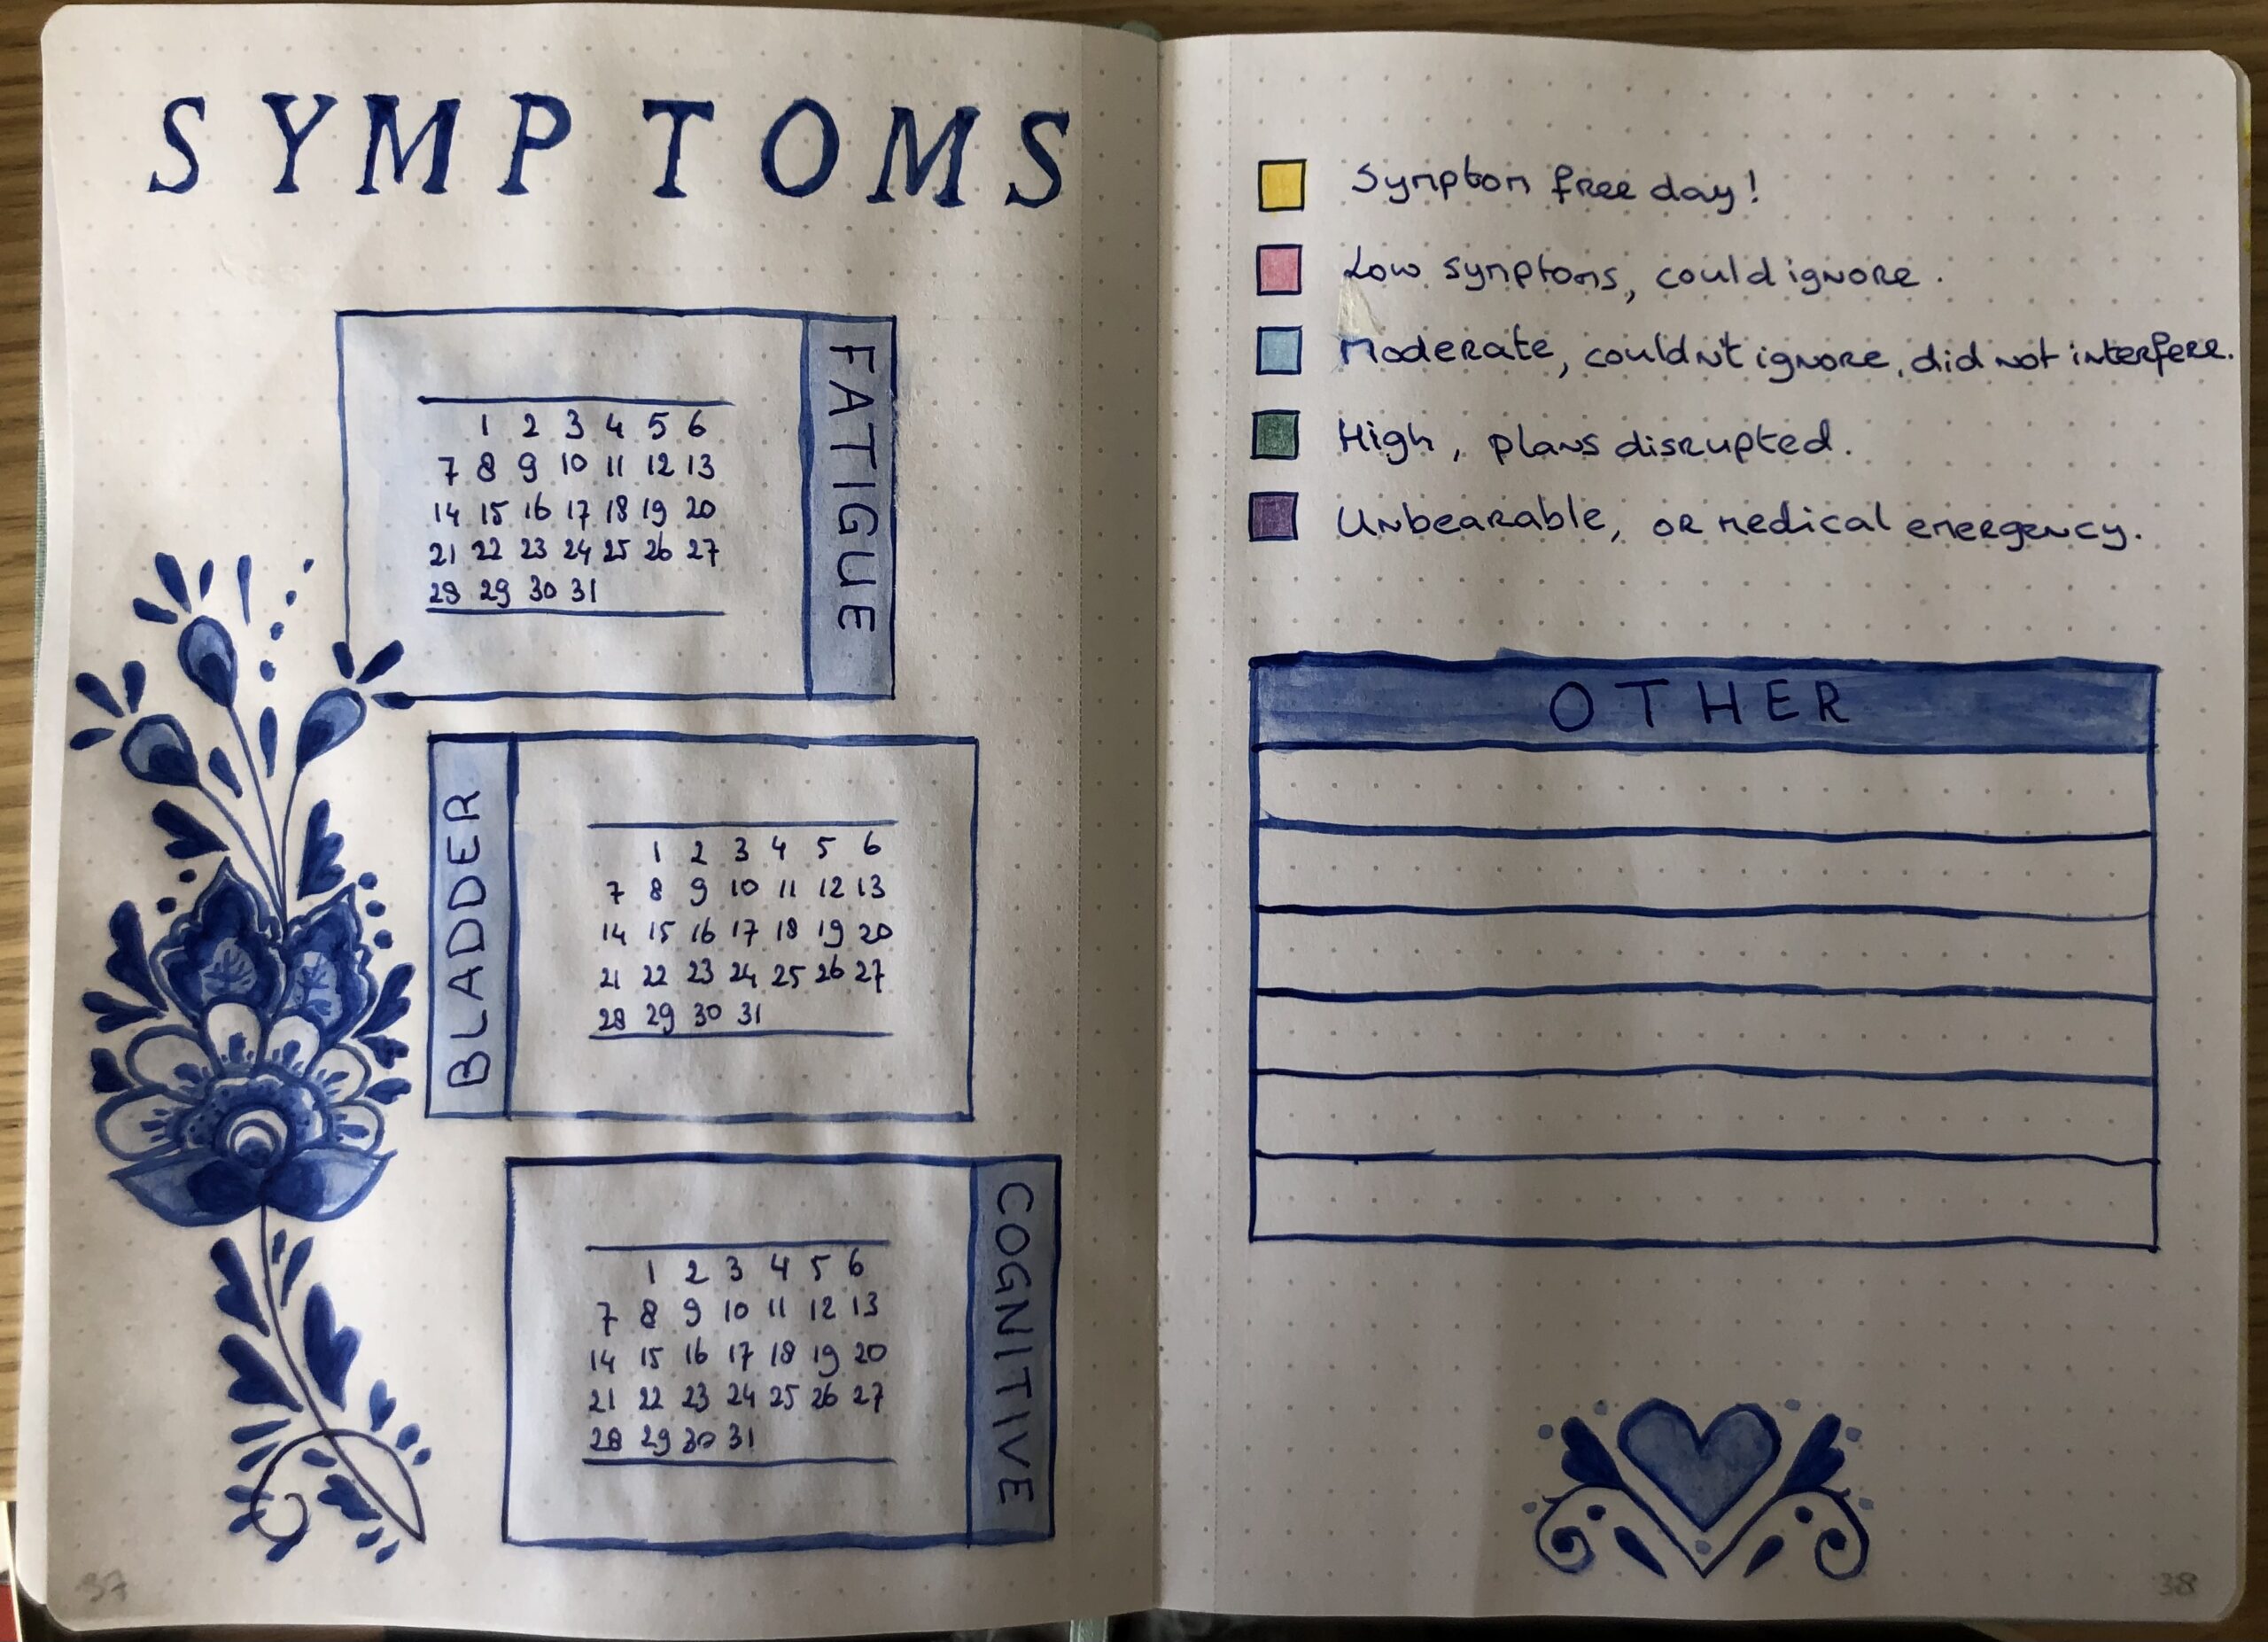 SYMPTOMS
FATIGUE
1 2 3 4 5 6
7 8 9 10 11 12 13
14 15 16 17 18 19 20
21 22 23 24 25 26 27
28 29 30 31
BLADDER
1 2 3 4 5 6
7 8 9 10 11 12 13
14 15 16 17 18 19 20
21 22 23 24 25 26 27
28 29 30 31
COGNITIVE
1 2 3 4 5 6
7 8 9 10 11 12 13
14 15 16 17 18 19 20
21 22 23 24 25 26 27
28 29 30 31
37
Symptom free day!
Low symptoms, could ignore.
Moderate, couldn't ignore, did not interfere.
High, plans disrupted.
Unbearable, or medical emergency.
OTHER
38